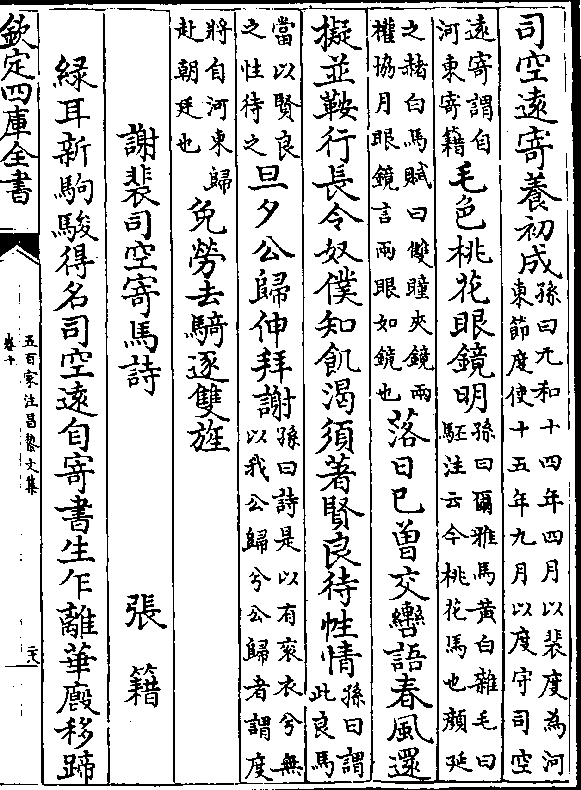 司空遠寄養初成孫曰元和十四年四月以裴度為河東節度使十五年九月以度守司空
遠寄謂自河東寄籍毛色桃花眼鏡明孫曰爾雅馬黃白雜毛曰駓注云今桃花馬也顔延
之赭白馬賦曰雙瞳夾鏡兩權協月眼鏡言兩眼如鏡也落日已曾交轡語春風還
擬並鞍行長令奴僕知飢渴須著賢良待性情孫曰謂此良馬
當以賢良之性待之旦夕公歸伸拜謝孫曰詩是以有衮衣兮無以我公歸兮公歸者謂度
將自河東歸赴朝廷也免勞去騎逐雙旌
謝裴司空寄馬詩 張籍
緑耳新駒駿得名司空遠自寄書生乍離華廄移蹄
欽定四庫全書
五百家注昌黎文集
卷十